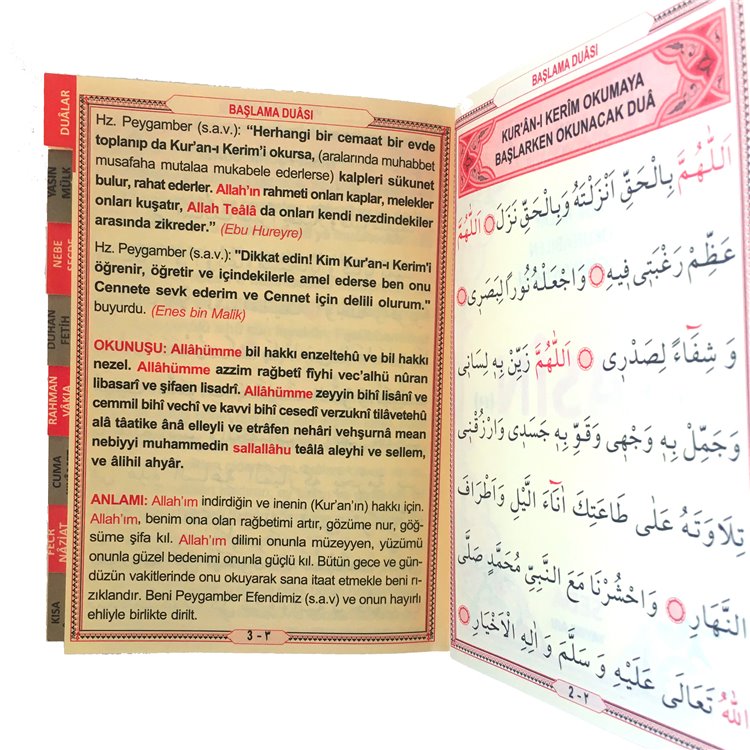 DUALAR
YASİN
MÜLK
NEBE
DUHAN
FETİH
RAHMAN
VAKIA
CUMA
FECR
NÂZİAT
KISA
BAŞLAMA DUÂSI
Hz. Peygamber (s.a.v.): "Herhangi bir cemaat bir evde
toplanıp da Kur'an-ı Kerim'i okursa, (aralarında muhabbet
musafaha mutalaa mukabele ederlerse) kalpleri sükunet
bulur, rahat ederler. Allah'ın rahmeti onları kaplar, melekler
onları kuşatır, Allah Teâlâ da onları kendi nezdindekiler
arasında zikreder." (Ebu Hureyre)
Hz. Peygamber (s.a.v.): "Dikkat edin! Kim Kur'an-ı Kerim'i
öğrenir, öğretir ve içindekilerle amel ederse ben onu
Cennete sevk ederim ve Cennet için delili olurum."
buyurdu. (Enes bin Malik)
OKUNUŞU: Allâhümme bil hakkı enzeltehû ve bil hakkı
nezel. Allâhümme azzim rağbetî fîyhi vec'alhü nûran
libasarî ve şifaen lisadrî. Allâhümme zeyyin bihî lisânî ve
cemmil bihî vechî ve kavvi bihî cesedî verzuknî tilâvetehû
alâ tâatike ânâ elleyli ve etrâfen nehâri vehşurnâ mean
nebiyyi muhammedin sallallâhu teâlâ aleyhi ve sellem,
ve âlihil ahyâr.
ANLAMI: Allah'ım indirdiğin ve inenin (Kur'an'ın) hakkı için.
Allah'ım, benim ona olan rağbetimi artır, gözüme nur, göğ-
süme şifa kıl. Allah'ım dilimi onunla müzeyyen, yüzümü
onunla güzel bedenimi onunla güçlü kıl. Bütün gece ve gün-
düzün vakitlerinde onu okuyarak sana itaat etmekle beni rı-
zıklandır. Beni Peygamber Efendimiz (s.a.v) ve onun hayırlı
ehliyle birlikte dirilt.
3 - ٣
BAŞLAMA DUÂSI
KUR'ÂN-I KERÎM OKUMAYA
BAŞLARKEN OKUNACAK DUÂ
اَللّٰهُمَّ بِالْحَقِّ اَنْزَلْتَهُ وَبِالْحَقِّ نَزَلَ اَللّٰهُمَّ
عَظِّمْ رَغْبَتٖى فٖيهِ وَاجْعَلْهُ نُورًا لِبَصَرٖى
وَ شِفَٓاءً لِصَدْرٖى اَللّٰهُمَّ زَيِّنْ بِهٖ لِسَانٖى
وَجَمِّلْ بِهٖ وَجْهٖى وَقَوِّ بِهٖ جَسَدٖى وَارْزُقْنٖى
تِلَاوَتَهُ عَلٰى طَاعَتِكَ اٰنَٓاءَ الَّيْلِ وَاَطْرَافَ
النَّهَارِ وَاحْشُرْنَا مَعَ النَّبِيِّ مُحَمَّدٍ صَلَّى
اللّٰهُ تَعَالٰى عَلَيْهِ وَ سَلَّمَ وَ اٰلِهِ الْاَخْيَارِ
2 - ٢